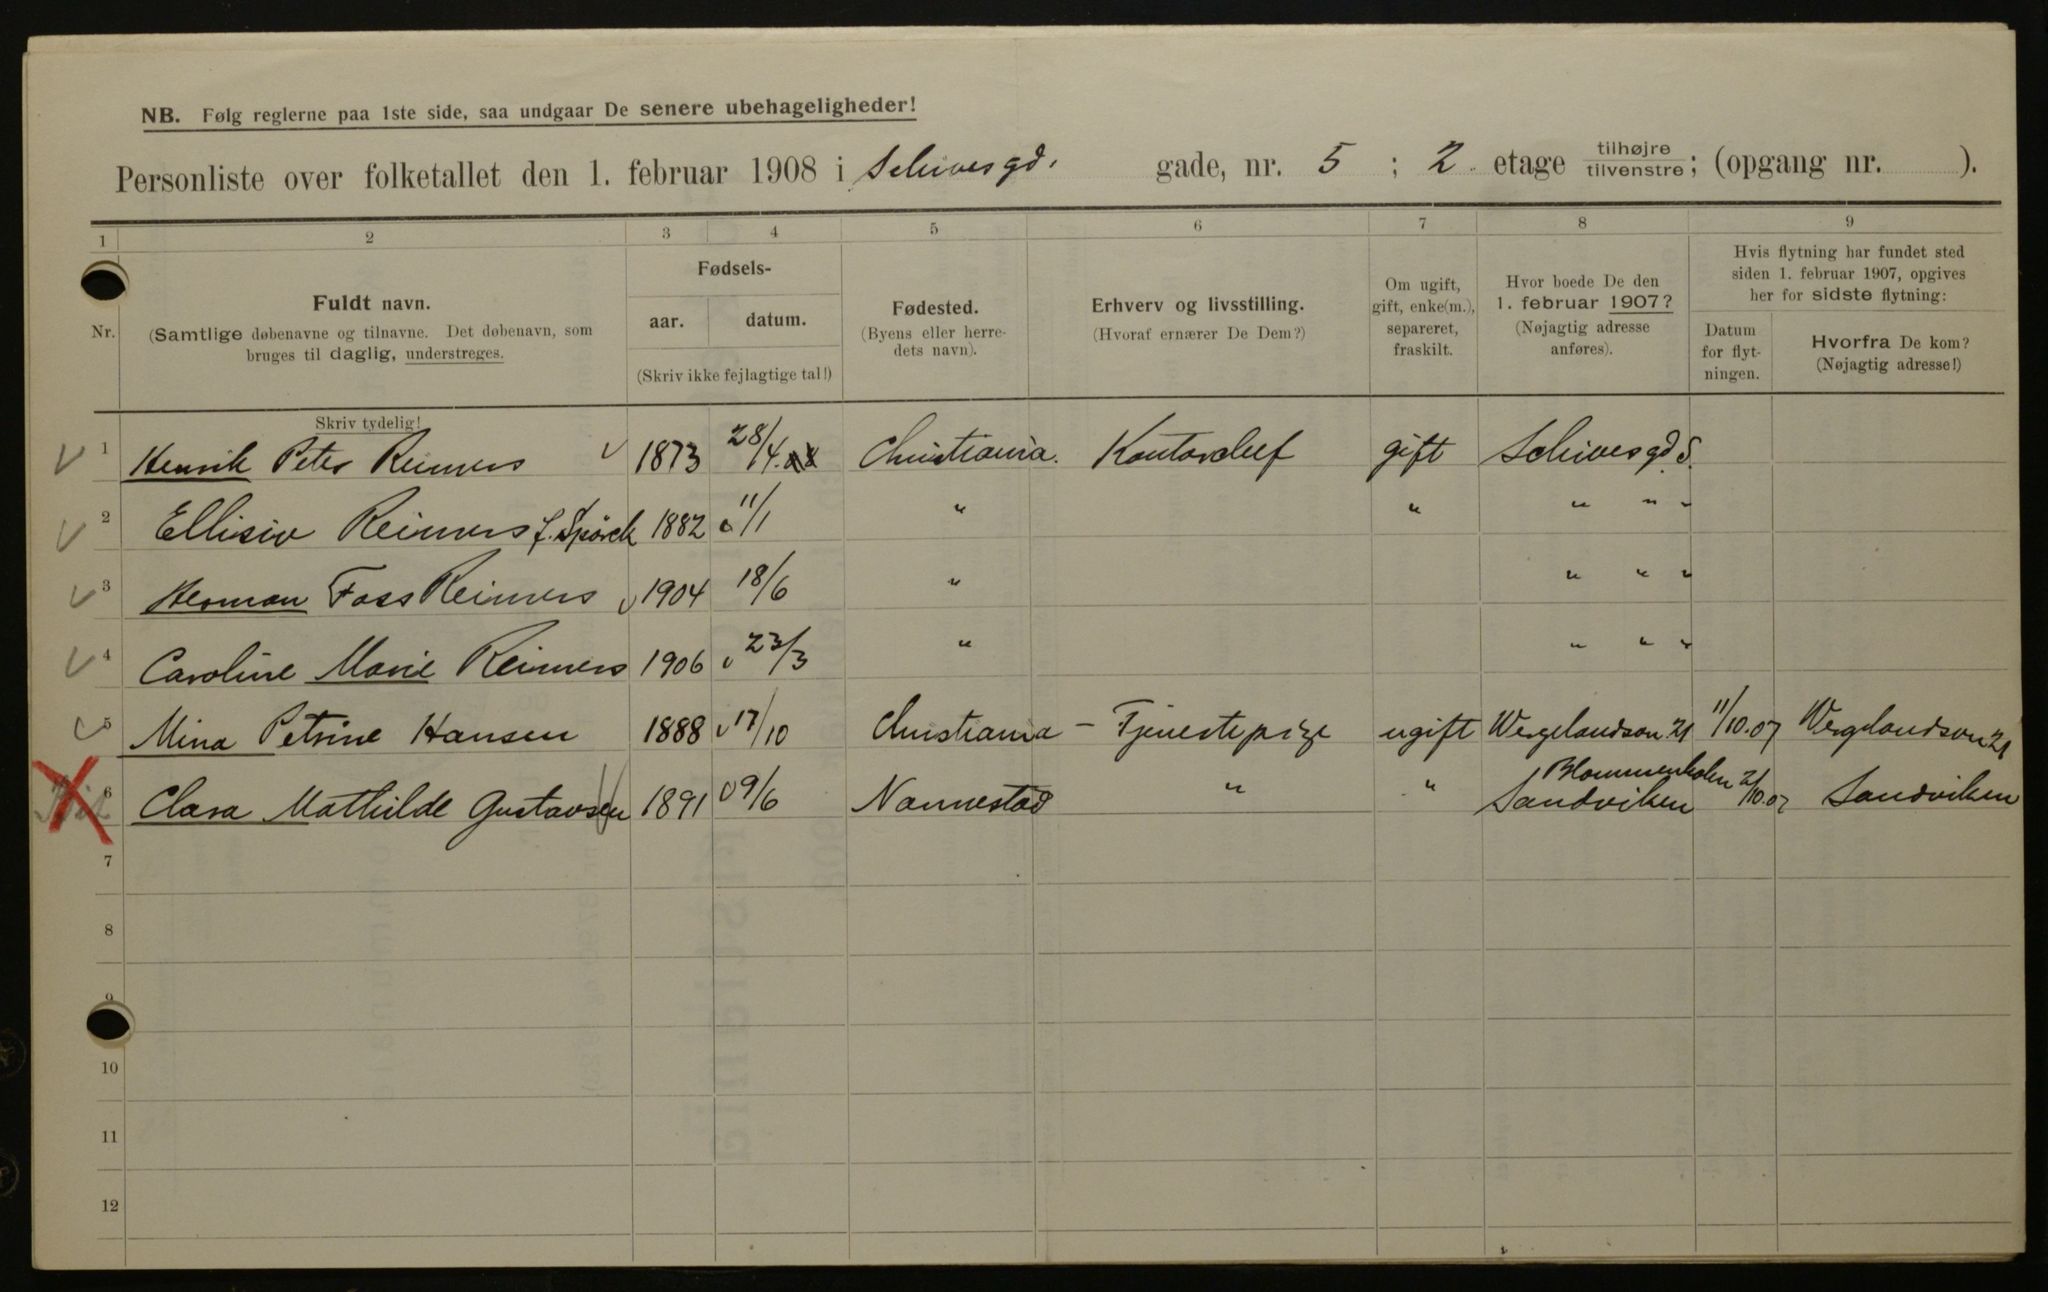 NB. Følg reglerne paa 1ste side, saa undgaar De senere ubehageligheder!
Personliste over folketallet den 1. februar 1908 i Schivesgd. gade, nr. 5 ; 2 etage tilhøjre tilvenstre; (opgang nr. ).
1 2 3 4 5 6 7 8 9
Nr.
Fuldt navn.
(Samtlige døbenavne og tilnavne. Det døbenavn, som
bruges til daglig, understreges.
Skriv tydelig!
Fødsels-
aar. datum.
(Skriv ikke fejlagtige tal!)
Fødested.
(Byens eller herre-
dets navn).
Erhverv og livsstilling.
(Hvoraf ernærer De Dem?)
Om ugift,
gift, enke(m.),
separeret,
fraskilt.
Hvor boede De den
1. februar 1907?
(Nøjagtig adresse
anføres).
Hvis flytning har fundet sted
siden 1. februar 1907, opgives
her for sidste flytning:
Datum
for flyt-
ningen.
Hvorfra De kom?
(Nøjagtig adresse!)
1 Henrik Peter Reimers 1873 28/4 Christiania. Kontorchef gift Schivesgd. 5.
2 Ellisiv Reimers f. Spörck 1882 11/1 " " " " "
3 Herman Foss Reimers 1904 18/6 " " " "
4 Caroline Marie Reimers 1906 23/3 " " " "
5 Mina Petrine Hansen 1888 17/10 Christiania – Tjenestepige ugift Wergelandsvn. 21 11/10.07 Wergelandsvn 21
6 Clara Mathilde Gustavsen 1891 9/6 Nannestad " " Blommenholm Sandviken 2/10.07 Sandviken
7
8
9
10
11
12